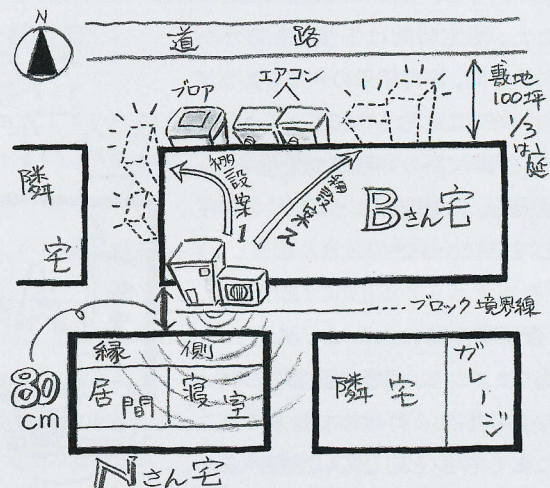 N
道路
ブロア
エアコン
敷地
100坪
1/3
は庭
隣宅
移設案1
移設案2
Bさん宅
ブロック境界線
80
cm
縁側
居間
寝室
Nさん宅
隣宅
ガレージ